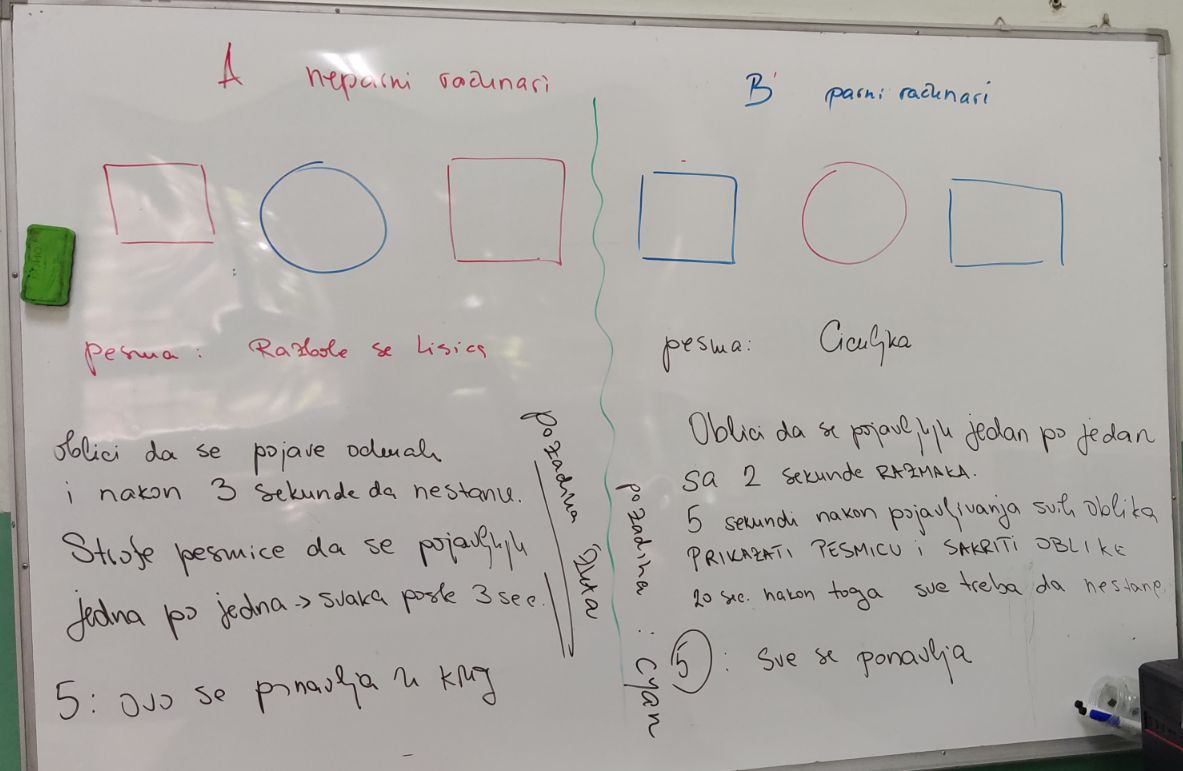 A neparni računari
pesma: Razbole se Lisica
Oblici da se pojave odmah
i nakon 3 sekunde da nestanu.
Strofe pesmice da se pojavljuju
jedna po jedna -> svaka posle 3 sec.
5: ovo se ponavlja u krug
pozadina žuta
B parni računari
pesma: Ciculjka
Oblici da se pojavljuju jedan po jedan
sa 2 sekunde RAZMAKA.
5 sekundi nakon pojavljivanja svih oblika
PRIKAZATI PESMICU i SAKRITI OBLIKE
20 sec. nakon toga sve treba da nestane.
5: sve se ponavlja
pozadina: cyan